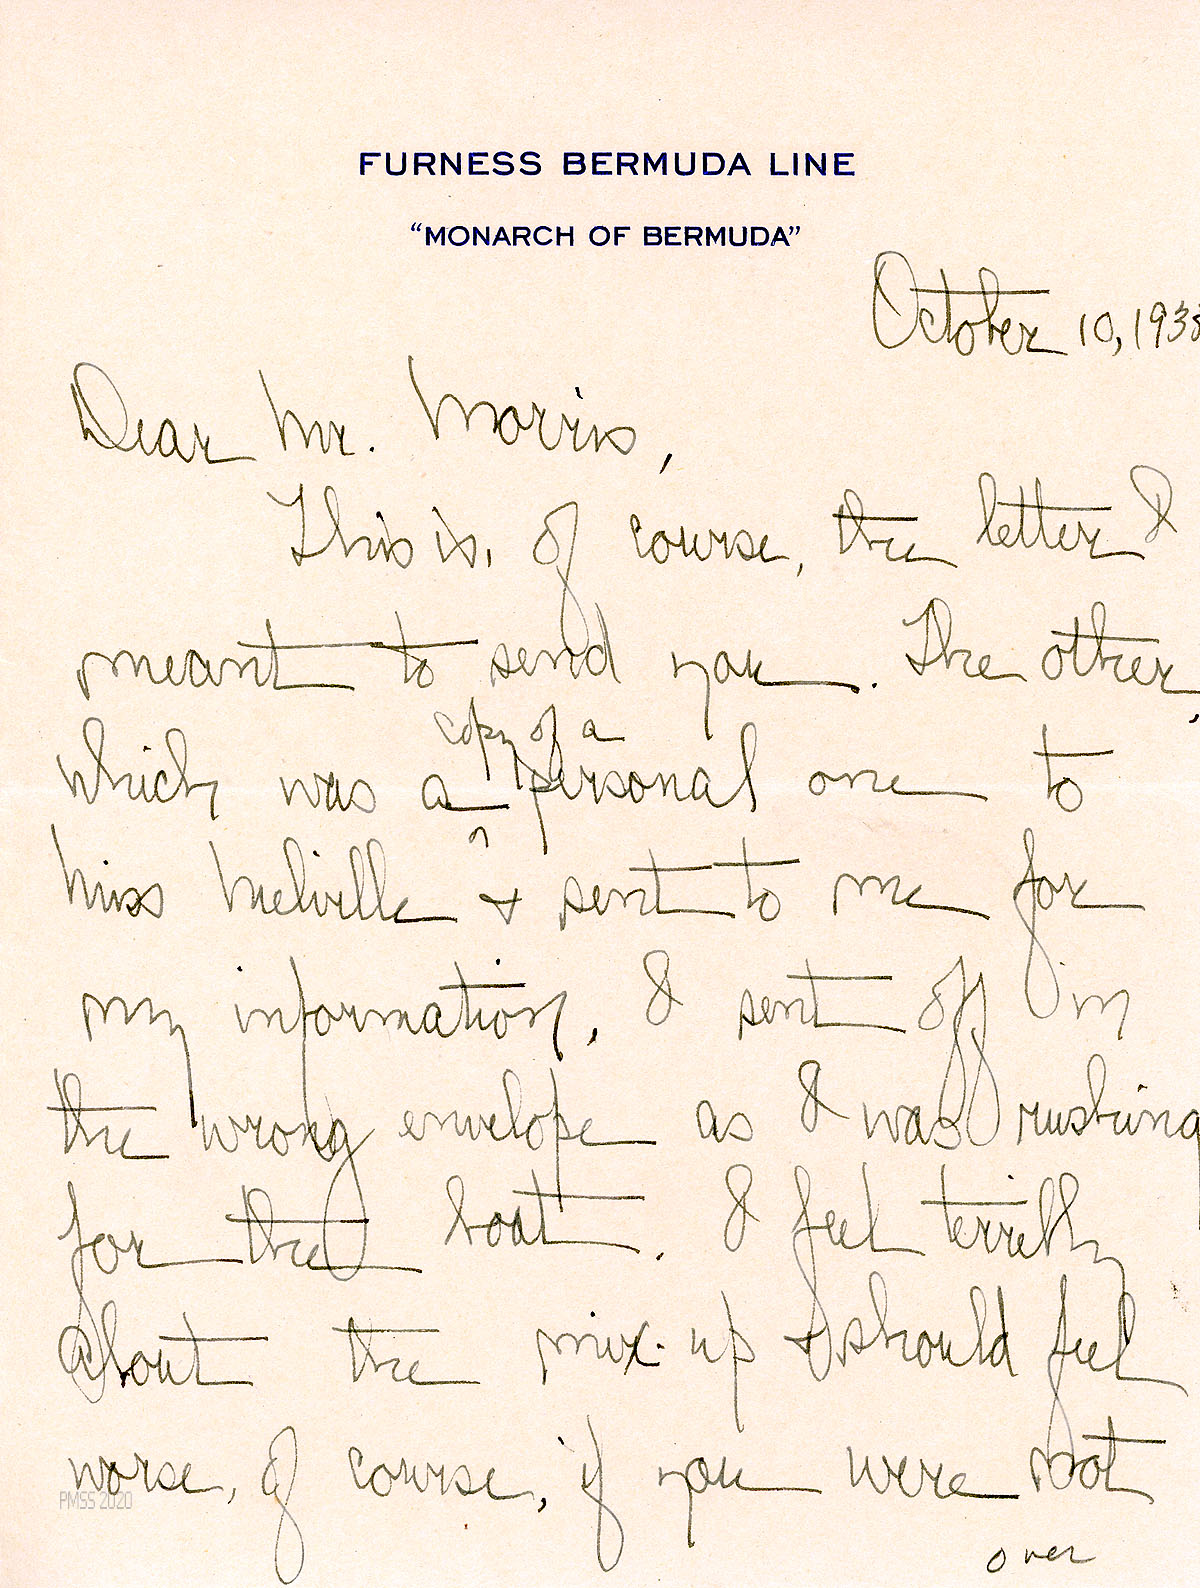 FURNESS BERMUDA LINE
“MONARCH OF BERMUDA”
October 10, 193
Dear Mr. Morris,
This is, of course, the letter I
meant to send you. The other,
copy of a
which was a personal one to
Miss Melville & sent to me for
my information, I sent off in
the wrong envelope as I was rushing
for the boat. I feel terribly
about the mix-up & should feel
worse, of course, if you were not
PMSS 2020
over